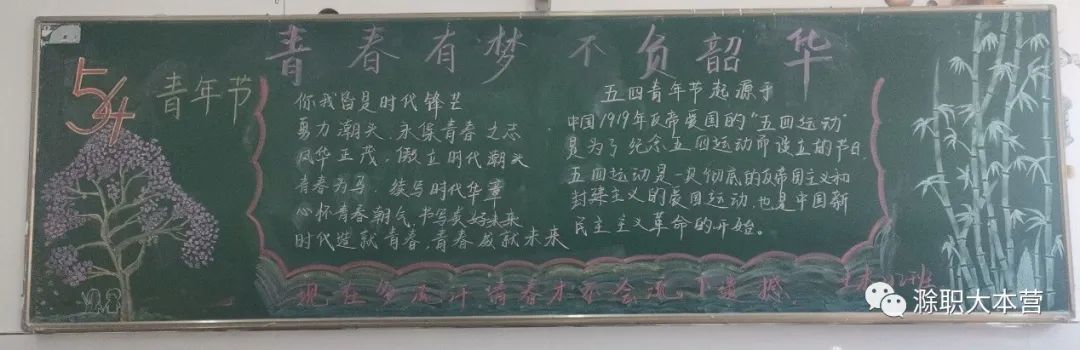 青春有梦 不负韶华
5/4
青年节
你我皆是时代锋芒
勇力潮头、永葆青春之志
风华正茂、傲立时代潮头
青春为马、续写时代华章
心怀青春朝气、书写美好未来
时代造就青春,青春成就未来
五四青年节起源于
中国1919年反帝爱国的“五四运动”
是为了纪念五四运动而设立的节日、
五四运动是一次彻底的反帝国主义和
封建主义的爱国运动,也是中国新
民主主义革命的开始。
现在多流汗,青春才不会留下遗憾
滁职大本营